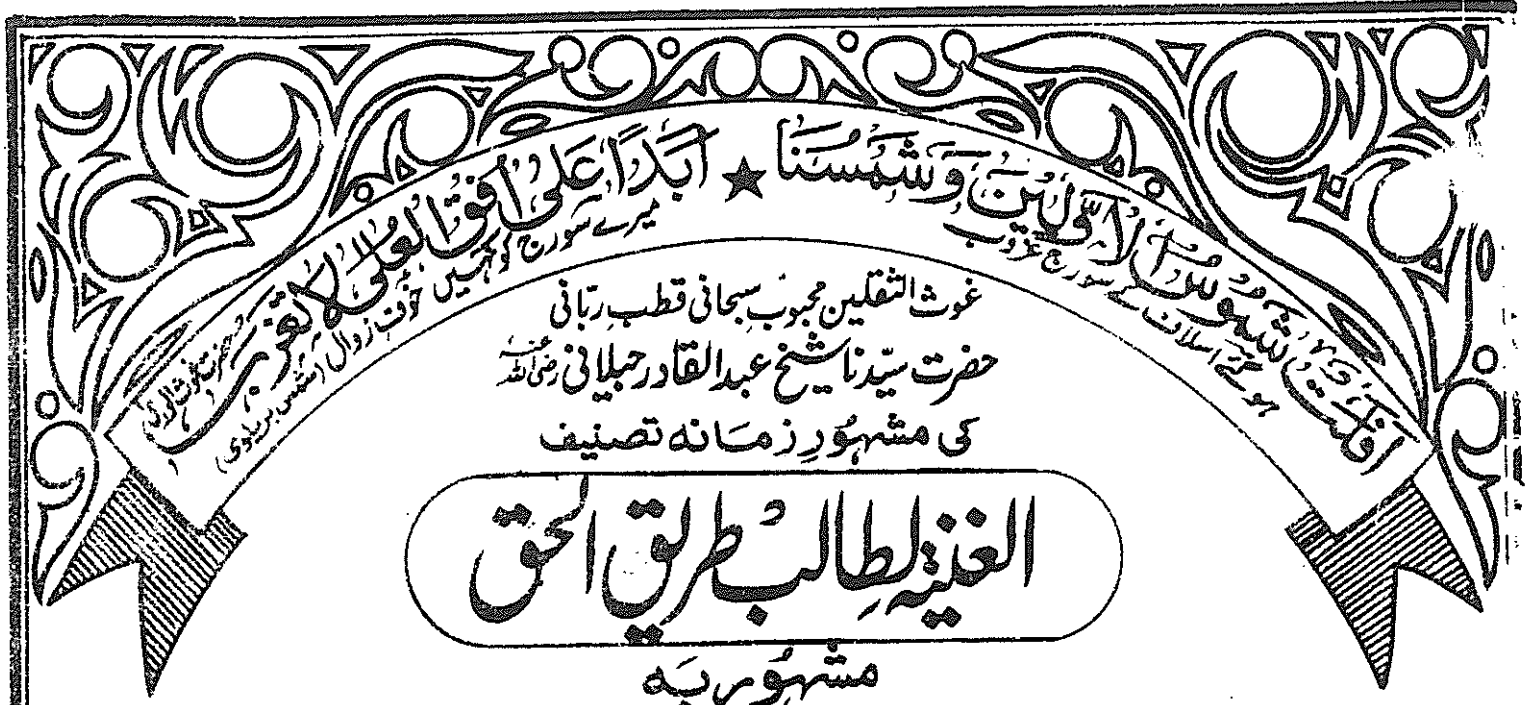 اَفَلَتْ شُمُوسُ الْاَوَّلِيْنَ وَشَمْسُنَا ★ اَبَدًا عَلٰى اُفُقِ الْعُلٰى لَا تَغْرُبُ
ہو گئے اسلاف کے سورج غروب
میرے سورج کو نہیں خوفِ زوال (شمس بریلوی)
غوث الثقلین محبوب سبحانی قطب ربّانی
حضرت سیّدنا شیخ عبدالقادر جیلانی رضی اللہ عنہ
کی مشہورِ زمانہ تصنیف
الغنیۃ لِطالب طریق الحق
مشہور بہ